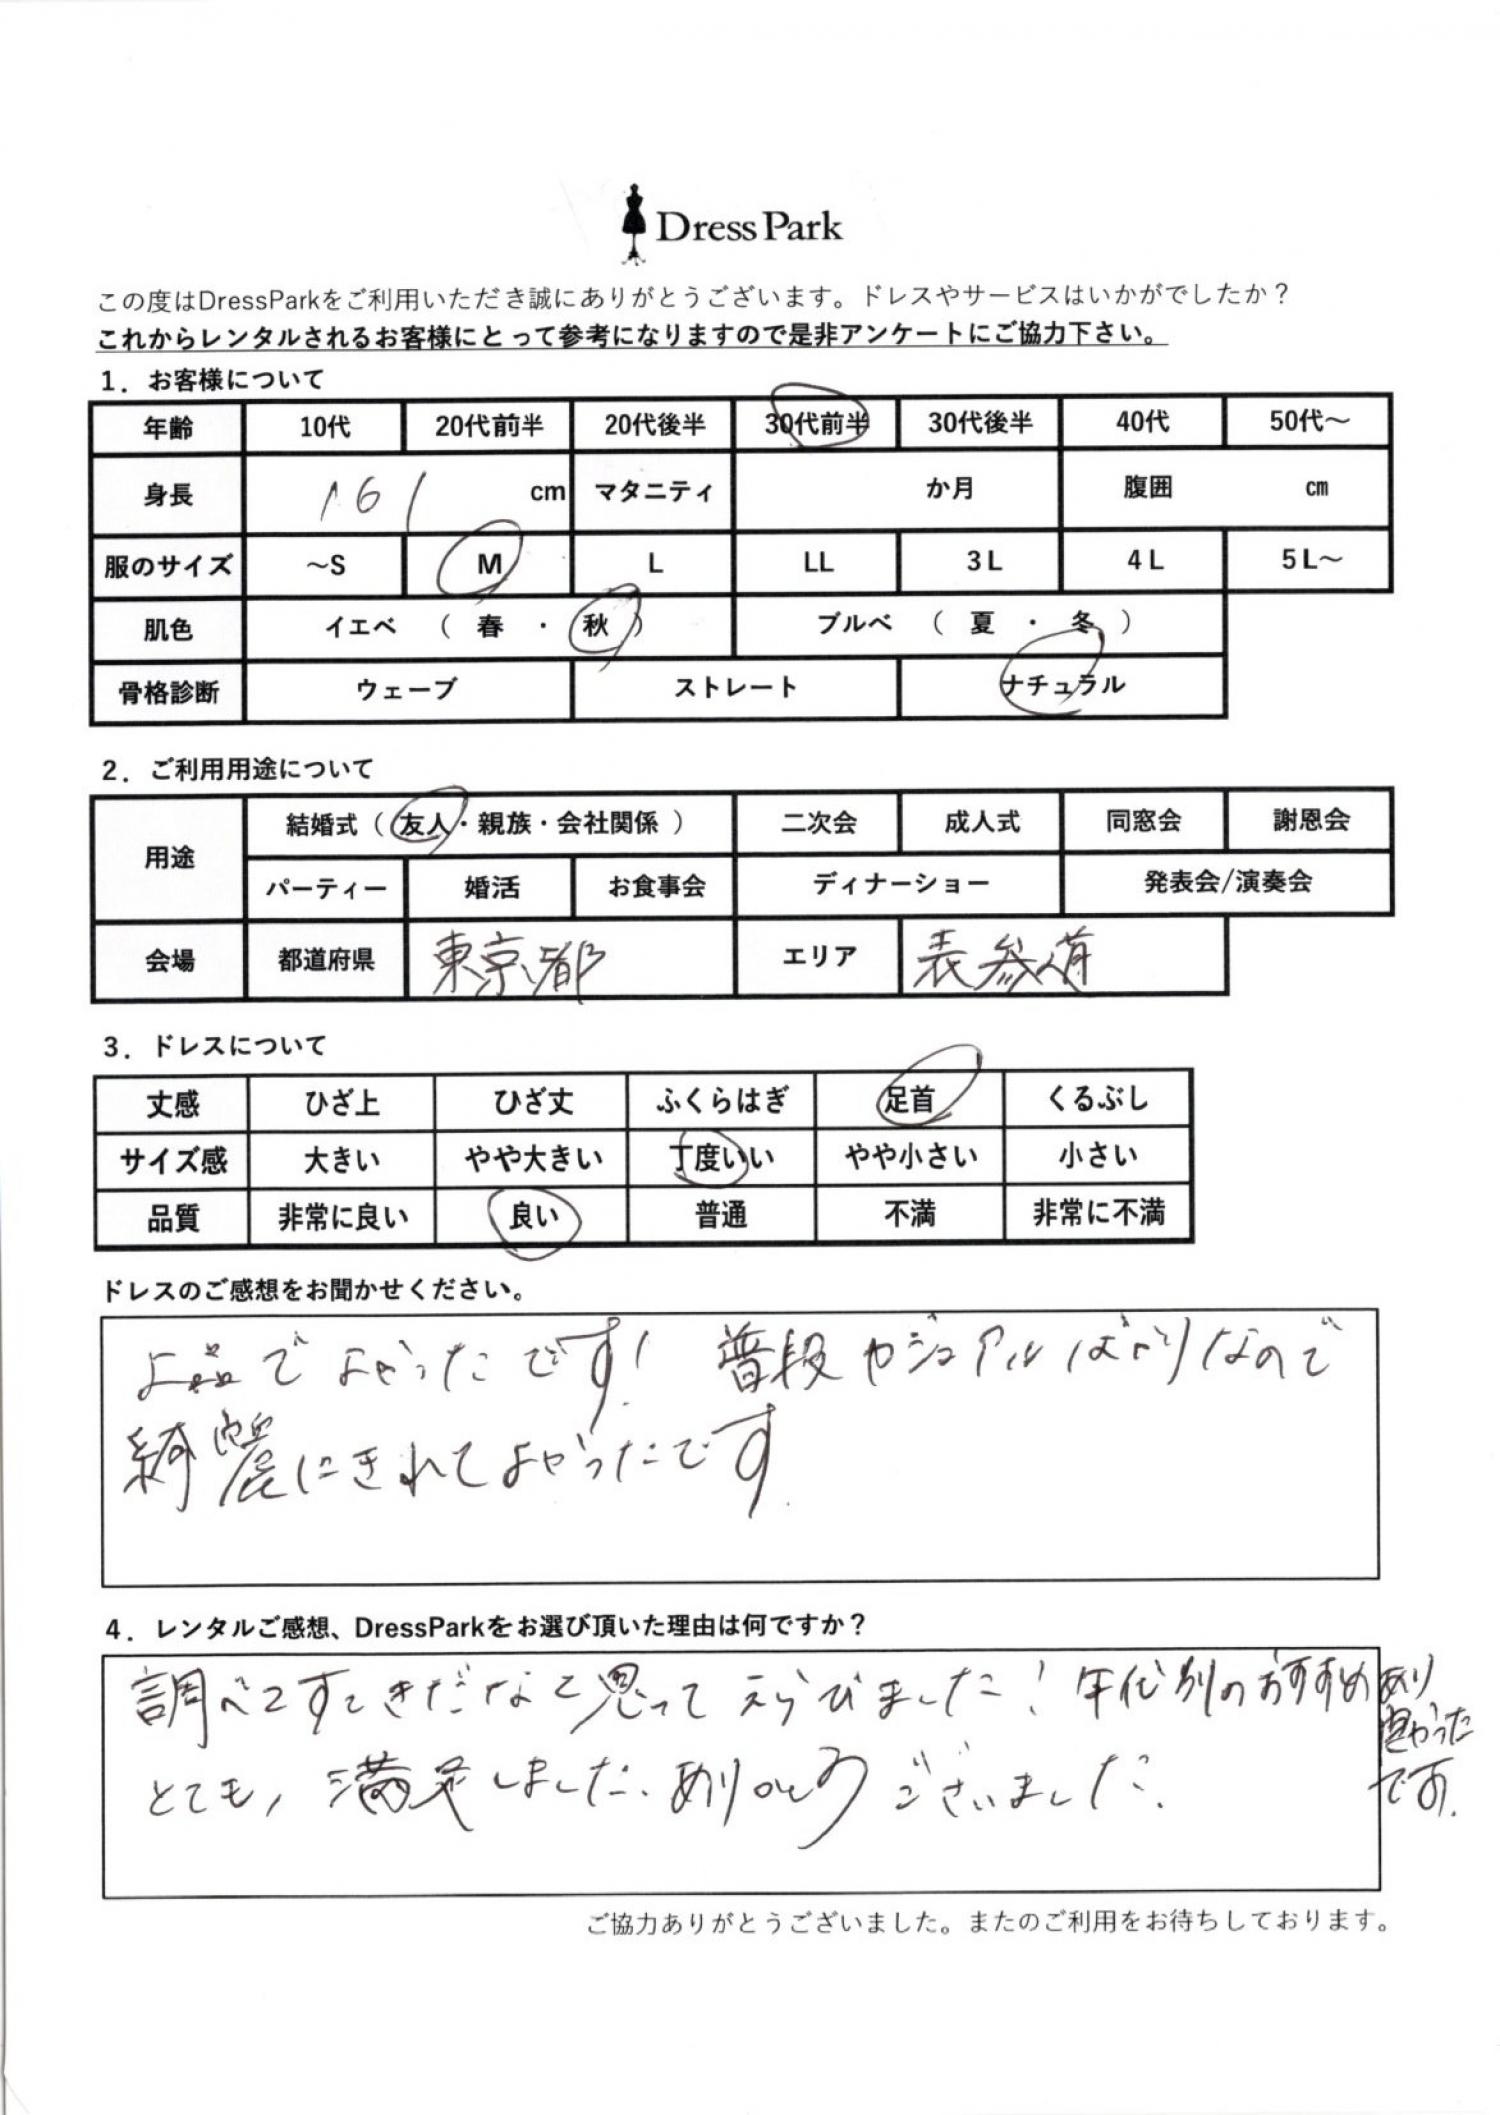 Dress Park
この度はDressParkをご利用いただき誠にありがとうございます。ドレスやサービスはいかがでしたか？
これからレンタルされるお客様にとって参考になりますので是非アンケートにご協力下さい。
1．お客様について
年齢 10代 20代前半 20代後半 30代前半 30代後半 40代 50代～
身長 161 cm マタニティ か月 腹囲 cm
服のサイズ ～S M L LL 3L 4L 5L～
肌色 イエベ （ 春 ・ 秋 ） ブルベ （ 夏 ・ 冬 ）
骨格診断 ウェーブ ストレート ナチュラル
2．ご利用用途について
用途 結婚式（ 友人・親族・会社関係 ） 二次会 成人式 同窓会 謝恩会
パーティー 婚活 お食事会 ディナーショー 発表会/演奏会
会場 都道府県 東京都 エリア 表参道
3．ドレスについて
丈感 ひざ上 ひざ丈 ふくらはぎ 足首 くるぶし
サイズ感 大きい やや大きい 丁度いい やや小さい 小さい
品質 非常に良い 良い 普通 不満 非常に不満
ドレスのご感想をお聞かせください。
上品でよかったです! 普段カジュアルばかりなので
綺麗にきれてよかったです
4．レンタルご感想、DressParkをお選び頂いた理由は何ですか？
調べてすてきだなと思ってえらびました! 年代別のおすすめあり
良かった
です.
とても, 満足しました. ありがとうございました.
ご協力ありがとうございました。またのご利用をお待ちしております。